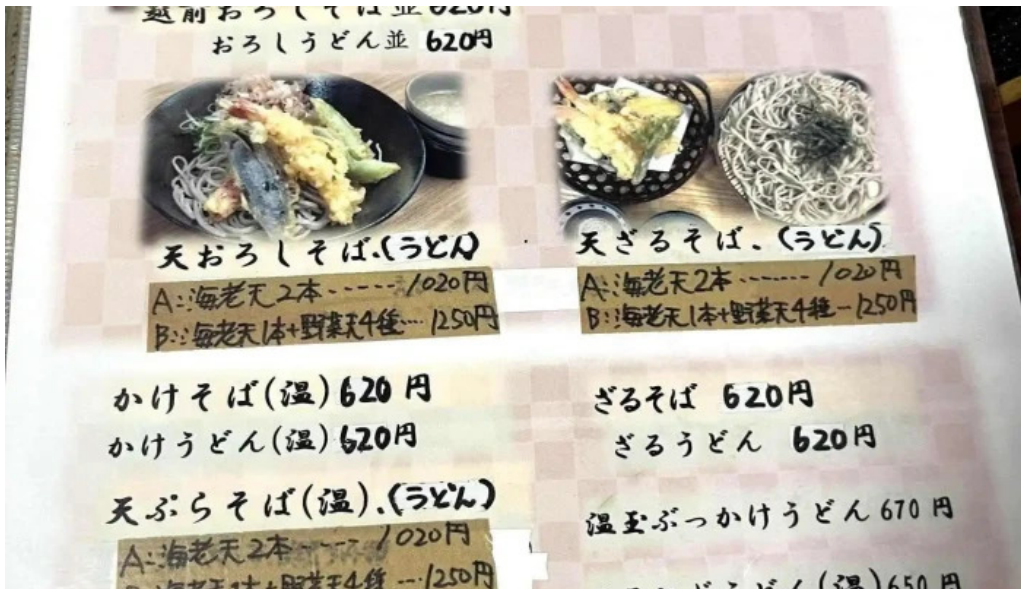 越前おろしそば並620円
おろしうどん並 620円
天おろしそば、(うどん)
A:海老天2本------1020円
B:海老天1本+野菜天4種---1250円
天ざるそば、(うどん)
A:海老天2本-------1020円
B:海老天1本+野菜天4種--1250円
かけそば(温)620円
かけうどん(温)620円
天ぷらそば(温)、(うどん)
A:海老天2本----1020円
B:海老天1本+野菜天4種---1250円
ざるそば 620円
ざるうどん 620円
温玉ぶっかけうどん670円
うどん(温)650円